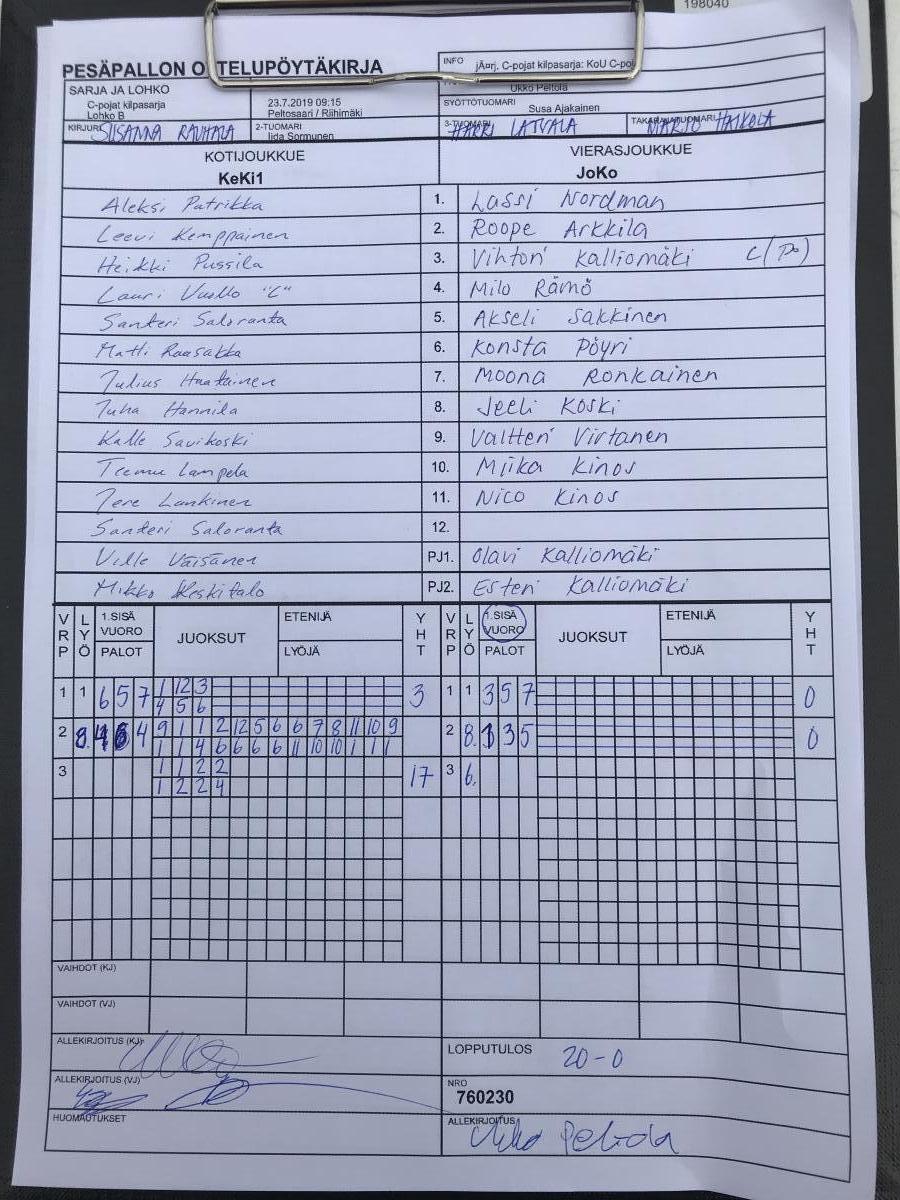 198040
PESÄPALLON O TELUPÖYTÄKIRJA
INFO jÃ¤rj. C-pojat kilpasarja: KoU C-poj
SARJA JA LOHKO
C-pojat kilpasarja
Lohko B
23.7.2019 09:15
Peltosaari / Riihimäki
Ukko Peltola
SYÖTTÖTUOMARI
Susa Ajakainen
KIRJURI SUSANNA RAUHALA
2-TUOMARI
Iida Sormunen
3-TUOMARI HARRI LATVALA
TAKARAJATUOMARI MARJO HAIKOLA
KOTIJOUKKUE VIERASJOUKKUE
KeKi1 JoKo
Aleksi Patrikka 1. Lassi Nordman
Leevi Kemppainen 2. Roope Arkkila
Heikki Pussila 3. Vihtori Kalliomäki C(Po)
Lauri Vuollo "C" 4. Milo Rämö
Santeri Saloranta 5. Akseli Sakkinen
Matti Raasakka 6. Konsta Pöyri
Julius Haatainen 7. Moona Ronkainen
Juha Hannila 8. Jeeli Koski
Kalle Savikoski 9. Valtteri Virtanen
Teemu Lampela 10. Miika Kinos
Jere Lankinen 11. Nico Kinos
Santeri Saloranta 12.
Ville Väisänen PJ1. Olavi Kalliomäki
Mikko Keskitalo PJ2. Esteri Kalliomäki
VRP LYÖ 1.SISÄ VUORO PALOT JUOKSUT ETENIJÄ LYÖJÄ YHT VRP LYÖ 1.SISÄ VUORO PALOT JUOKSUT ETENIJÄ LYÖJÄ YHT
1 1 6 5 7 1 12 3 3 1 1 3 5 7 0
4 5 6
2 8. 4 4 9 1 1 2 12 5 6 6 7 8 11 10 9 2 8. 3 5 0
1 1 4 6 6 6 6 11 10 10 1 1 1
3 1 1 2 2 17 3 6.
1 2 2 4
VAIHDOT (KJ)
VAIHDOT (VJ)
ALLEKIRJOITUS (KJ)
LOPPUTULOS 20-0
ALLEKIRJOITUS (VJ)
NRO
760230
HUOMAUTUKSET
ALLEKIRJOITUS
Ukko Peltola